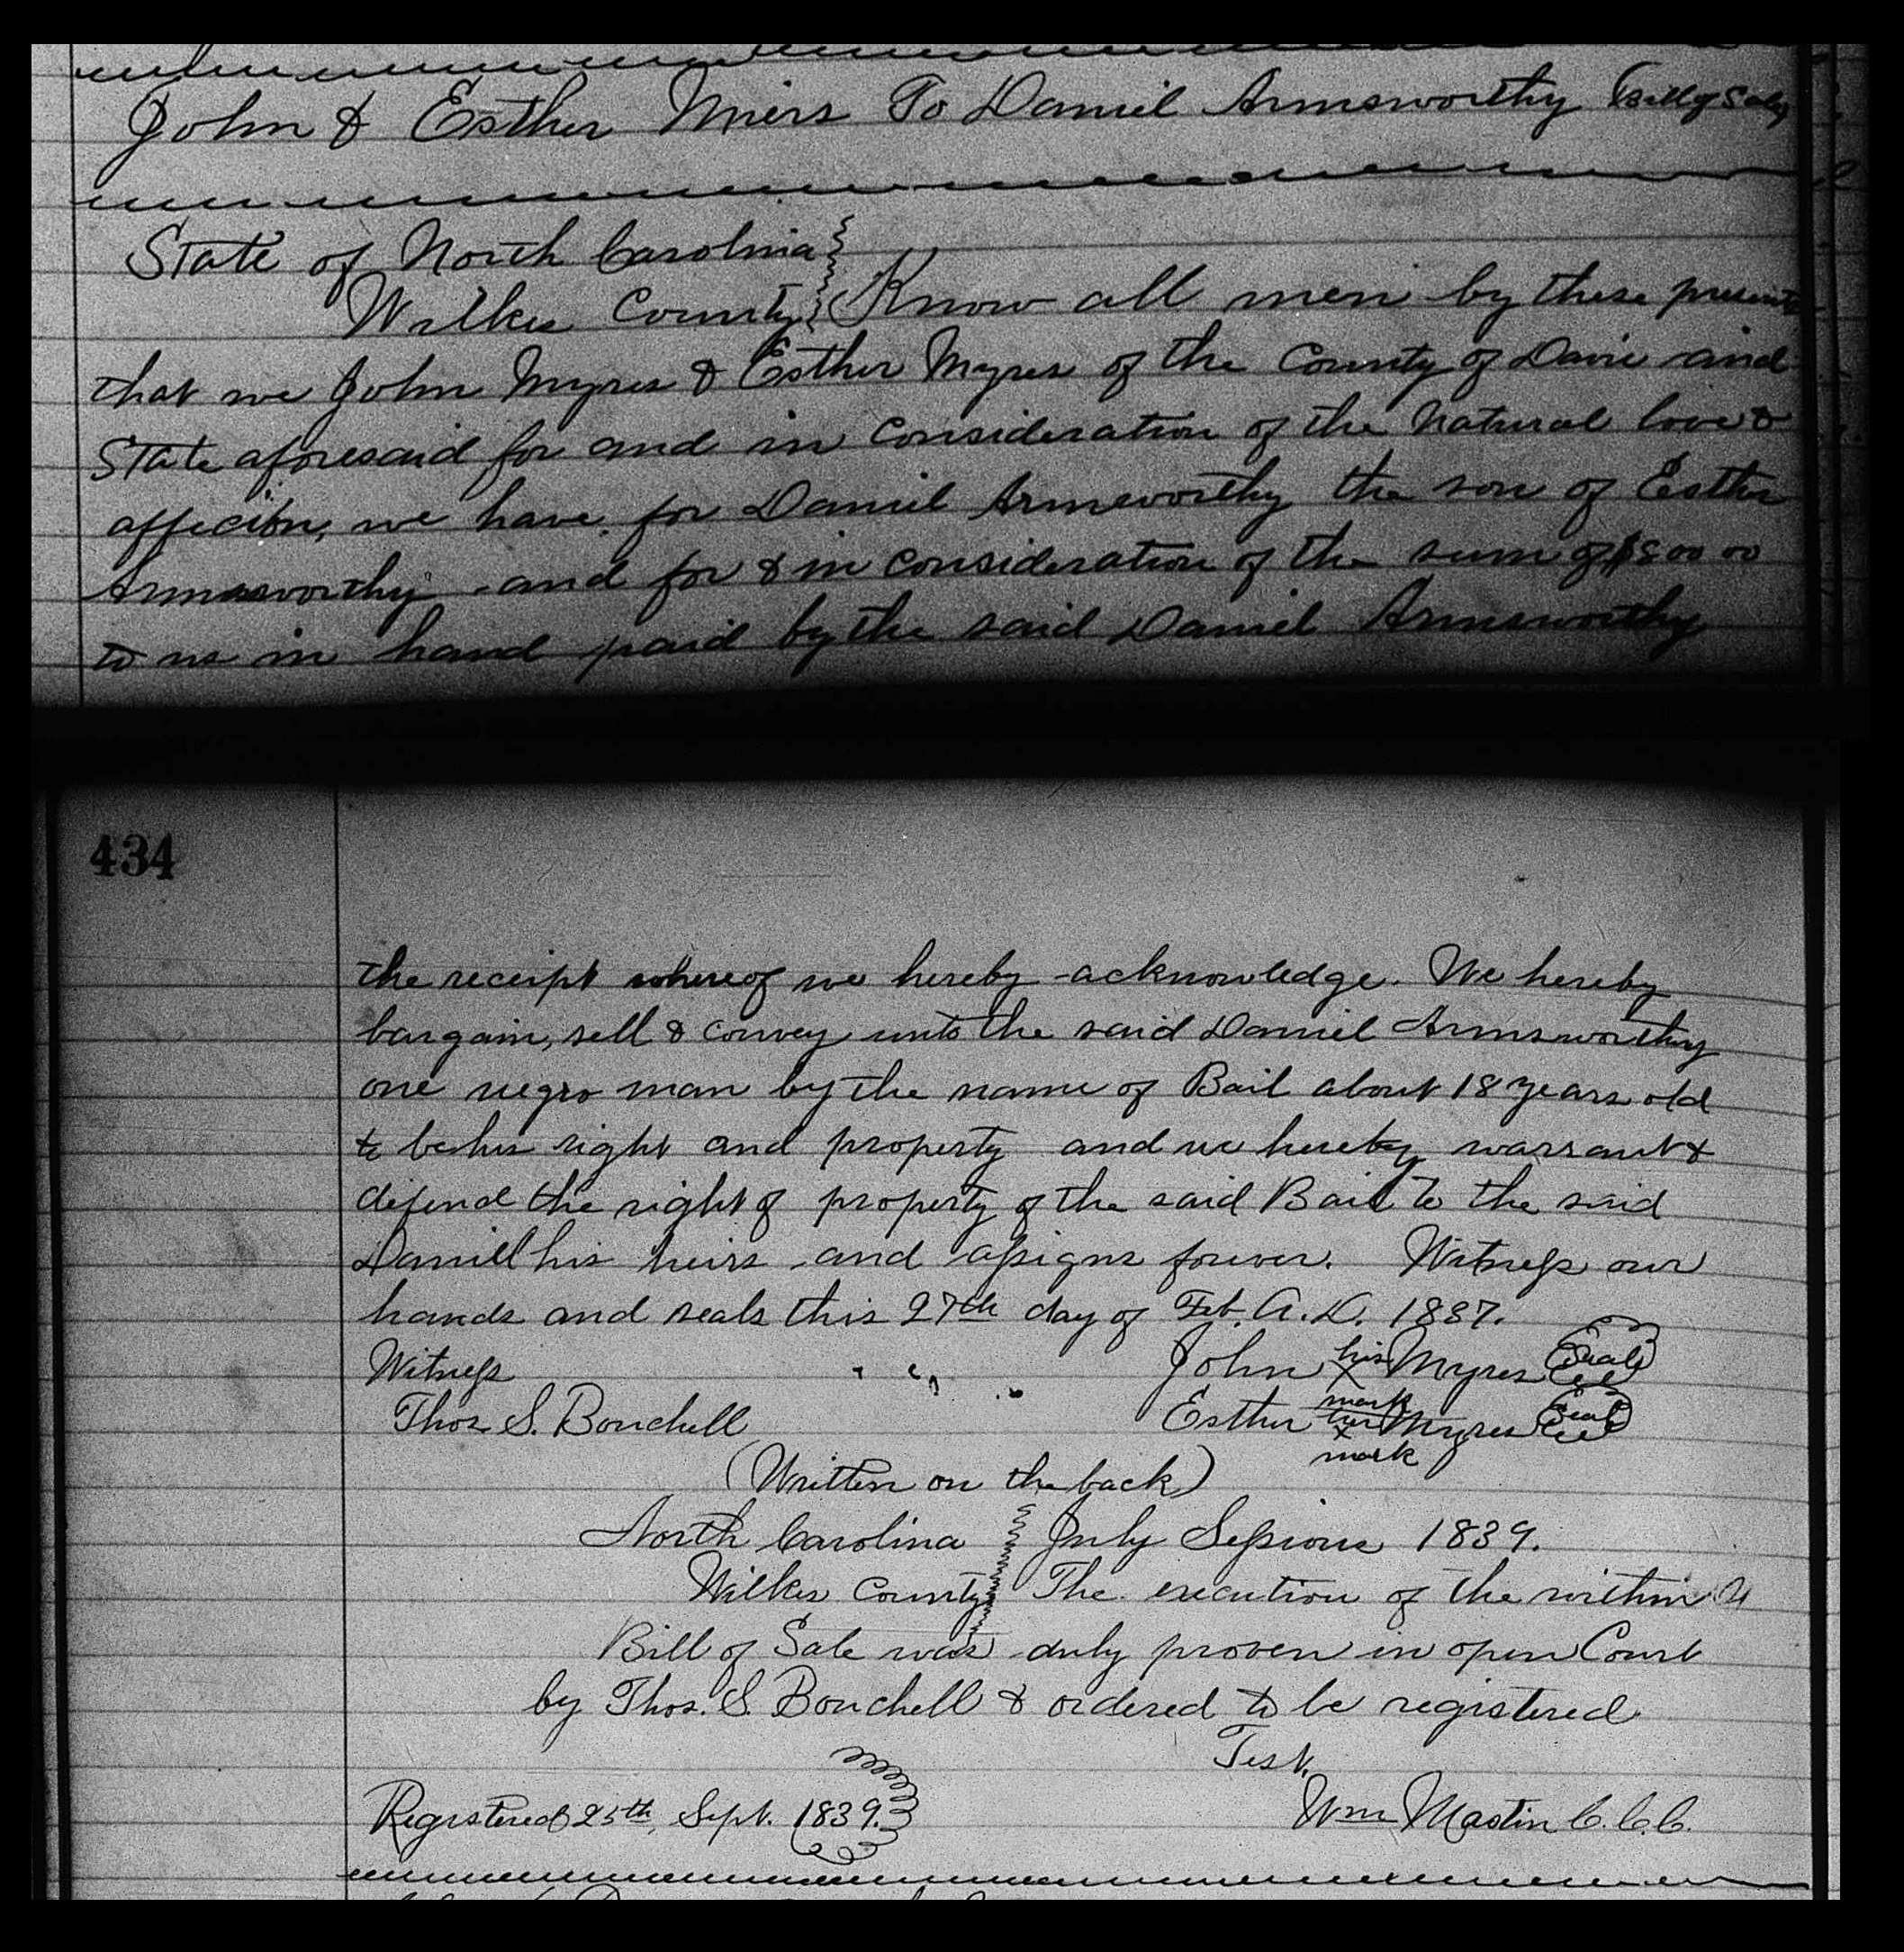 John & Esther Miers To Daniel Armsworthy (Bill of Sale)
State of North Carolina
Wilkes County Know all men by these presents
that we John Myres & Esther Myres of the County of Davie and
State aforesaid for and in consideration of the Natural love &
affection, we have for Daniel Armsworthy the son of Esther
Armsworthy and for & in consideration of the sum of $800 00
to us in hand paid by the said Daniel Armsworthy
434
the receipt whereof we hereby acknowledge. We hereby
bargain, sell & convey unto the said Daniel Armsworthy
one negro man by the name of Bail about 18 years old
to be his right and property and we hereby warrant &
defend the right of property of the said Bail to the said
Daniel his heirs and assigns forever. Witness our
hands and seals this 27th day of Feb. A.D. 1837.
Witness John his x mark Myres (Seal)
Thos S. Bouchell Esther her x mark Myres (Seal)
(Written on the back)
North Carolina July Sessions 1839.
Wilkes County The execution of the within
Bill of Sale was duly proven in open Court
by Thos. S. Bouchell & ordered to be registered
Test.
Registered 25th, Sept. 1839. Wm Mastin C.C.C.